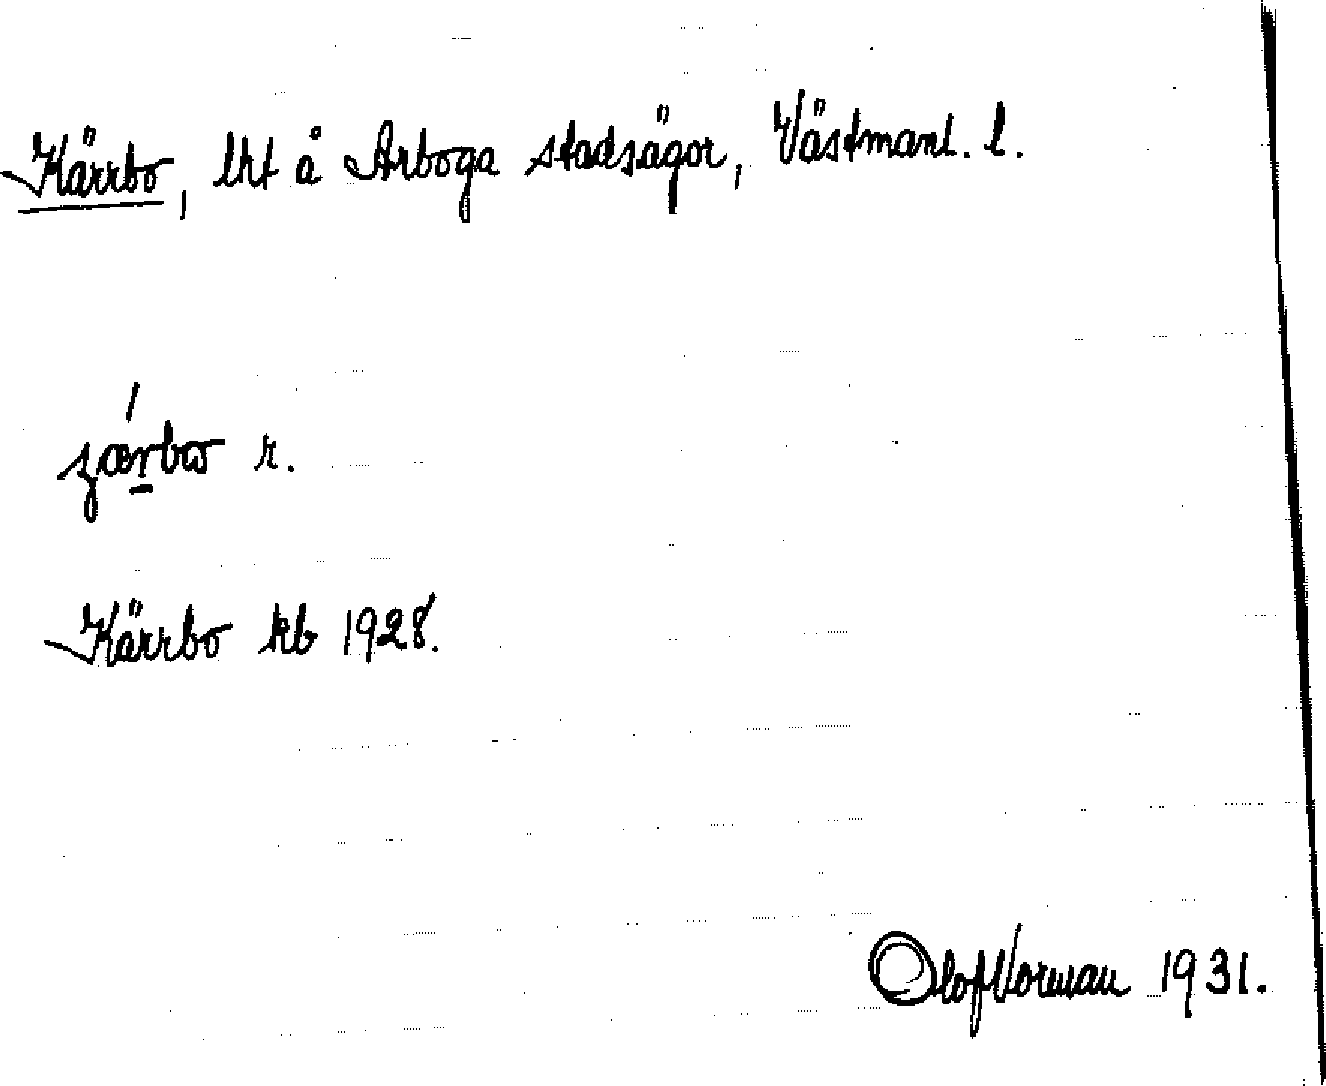 Kärrbo, lht å Arboga stadsägor, Västmanl. l.
r.
Kärrbo kb 1928.
Olof Norman 1931.